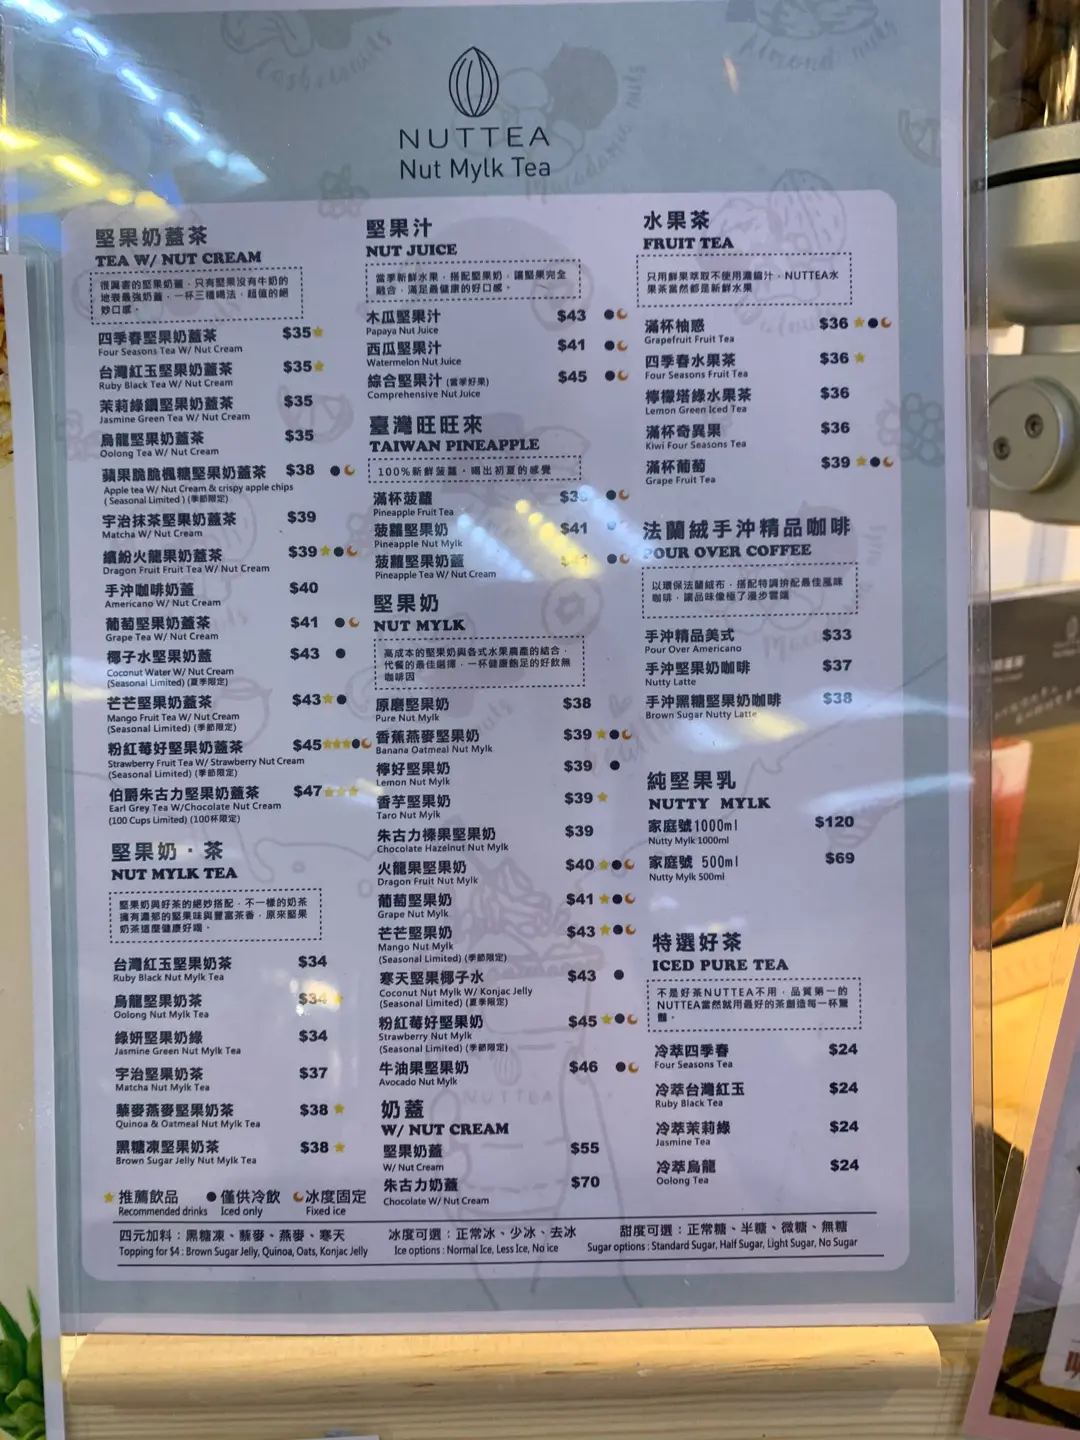 NUTTEA
Nut Mylk Tea
堅果奶蓋茶
TEA W/ NUT CREAM
很厲害的堅果奶蓋，只有堅果沒有牛奶的
地表最強奶蓋，一杯三種喝法，超值的絕
妙口感。
四季春堅果奶蓋茶 $35
Four Seasons Tea W/ Nut Cream
台灣紅玉堅果奶蓋茶 $35
Ruby Black Tea W/ Nut Cream
茉莉綠鑽堅果奶蓋茶 $35
Jasmine Green Tea W/ Nut Cream
烏龍堅果奶蓋茶 $35
Oolong Tea W/ Nut Cream
蘋果脆脆楓糖堅果奶蓋茶 $38
Apple tea W/ Nut Cream & crispy apple chips
( Seasonal Limited ) (季節限定)
宇治抹茶堅果奶蓋茶 $39
Matcha W/ Nut Cream
繽紛火龍果奶蓋茶 $39
Dragon Fruit Fruit Tea W/ Nut Cream
手沖咖啡奶蓋 $40
Americano W/ Nut Cream
葡萄堅果奶蓋茶 $41
Grape Tea W/ Nut Cream
椰子水堅果奶蓋 $43
Coconut Water W/ Nut Cream
(Seasonal Limited) (夏季限定)
芒芒堅果奶蓋茶 $43
Mango Fruit Tea W/ Nut Cream
(Seasonal Limited) (季節限定)
粉紅莓好堅果奶蓋茶 $45
Strawberry Fruit Tea W/ Strawberry Nut Cream
(Seasonal Limited) (季節限定)
伯爵朱古力堅果奶蓋茶 $47
Earl Grey Tea W/Chocolate Nut Cream
(100 Cups Limited) (100杯限定)
堅果奶・茶
NUT MYLK TEA
堅果奶與好茶的絕妙搭配，不一樣的奶茶
擁有濃郁的堅果味與豐富茶香，原來堅果
奶茶這麼健康好喝。
台灣紅玉堅果奶茶 $34
Ruby Black Nut Mylk Tea
烏龍堅果奶茶 $34
Oolong Nut Mylk Tea
綠妍堅果奶綠 $34
Jasmine Green Nut Mylk Tea
宇治堅果奶茶 $37
Matcha Nut Mylk Tea
藜麥燕麥堅果奶茶 $38
Quinoa & Oatmeal Nut Mylk Tea
黑糖凍堅果奶茶 $38
Brown Sugar Jelly Nut Mylk Tea
推薦飲品 僅供冷飲 冰度固定
Recommended drinks Iced only Fixed ice
堅果汁
NUT JUICE
當季新鮮水果，搭配堅果奶，讓堅果完全
融合，滿足最健康的好口感。
木瓜堅果汁 $43
Papaya Nut Juice
西瓜堅果汁 $41
Watermelon Nut Juice
綜合堅果汁 (當季好果) $45
Comprehensive Nut Juice
臺灣旺旺來
TAIWAN PINEAPPLE
100%新鮮菠蘿，喝出初夏的感覺
滿杯菠蘿
Pineapple Fruit Tea
菠蘿堅果奶 $41
Pineapple Nut Mylk
菠蘿堅果奶蓋
Pineapple Tea W/ Nut Cream
堅果奶
NUT MYLK
高成本的堅果奶與各式水果農產的結合，
代餐的最佳選擇，一杯健康飽足的好飲無
咖啡因
原磨堅果奶 $38
Pure Nut Mylk
香蕉燕麥堅果奶 $39
Banana Oatmeal Nut Mylk
檸好堅果奶 $39
Lemon Nut Mylk
香芋堅果奶 $39
Taro Nut Mylk
朱古力榛果堅果奶 $39
Chocolate Hazelnut Nut Mylk
火龍果堅果奶 $40
Dragon Fruit Nut Mylk
葡萄堅果奶 $41
Grape Nut Mylk
芒芒堅果奶 $43
Mango Nut Mylk
(Seasonal Limited) (季節限定)
寒天堅果椰子水 $43
Coconut Nut Mylk W/ Konjac Jelly
(Seasonal Limited) (夏季限定)
粉紅莓好堅果奶 $45
Strawberry Nut Mylk
(Seasonal Limited) (季節限定)
牛油果堅果奶 $46
Avocado Nut Mylk
奶蓋
W/ NUT CREAM
堅果奶蓋 $55
W/ Nut Cream
朱古力奶蓋 $70
Chocolate W/ Nut Cream
水果茶
FRUIT TEA
只用鮮果萃取不使用濃縮汁，NUTTEA水
果茶當然都是新鮮水果
滿杯柚惑 $36
Grapefruit Fruit Tea
四季春水果茶 $36
Four Seasons Fruit Tea
檸檬塔綠水果茶 $36
Lemon Green Iced Tea
滿杯奇異果 $36
Kiwi Four Seasons Tea
滿杯葡萄 $39
Grape Fruit Tea
法蘭絨手沖精品咖啡
POUR OVER COFFEE
以環保法蘭絨布，搭配特調拚配最佳風味
咖啡，讓品味像極了漫步雲端
手沖精品美式 $33
Pour Over Americano
手沖堅果奶咖啡 $37
Nutty Latte
手沖黑糖堅果奶咖啡 $38
Brown Sugar Nutty Latte
純堅果乳
NUTTY MYLK
家庭號1000ml $120
Nutty Mylk 1000ml
家庭號 500ml $69
Nutty Mylk 500ml
特選好茶
ICED PURE TEA
不是好茶NUTTEA不用，品質第一的
NUTTEA當然就用最好的茶創造每一杯驚
豔。
冷萃四季春 $24
Four Seasons Tea
冷萃台灣紅玉 $24
Ruby Black Tea
冷萃茉莉綠 $24
Jasmine Tea
冷萃烏龍 $24
Oolong Tea
四元加料：黑糖凍、藜麥、燕麥、寒天 冰度可選：正常冰、少冰、去冰 甜度可選：正常糖、半糖、微糖、無糖
Topping for $4 : Brown Sugar Jelly, Quinoa, Oats, Konjac Jelly Ice options : Normal Ice, Less Ice, No ice Sugar options : Standard Sugar, Half Sugar, Light Sugar, No Sugar